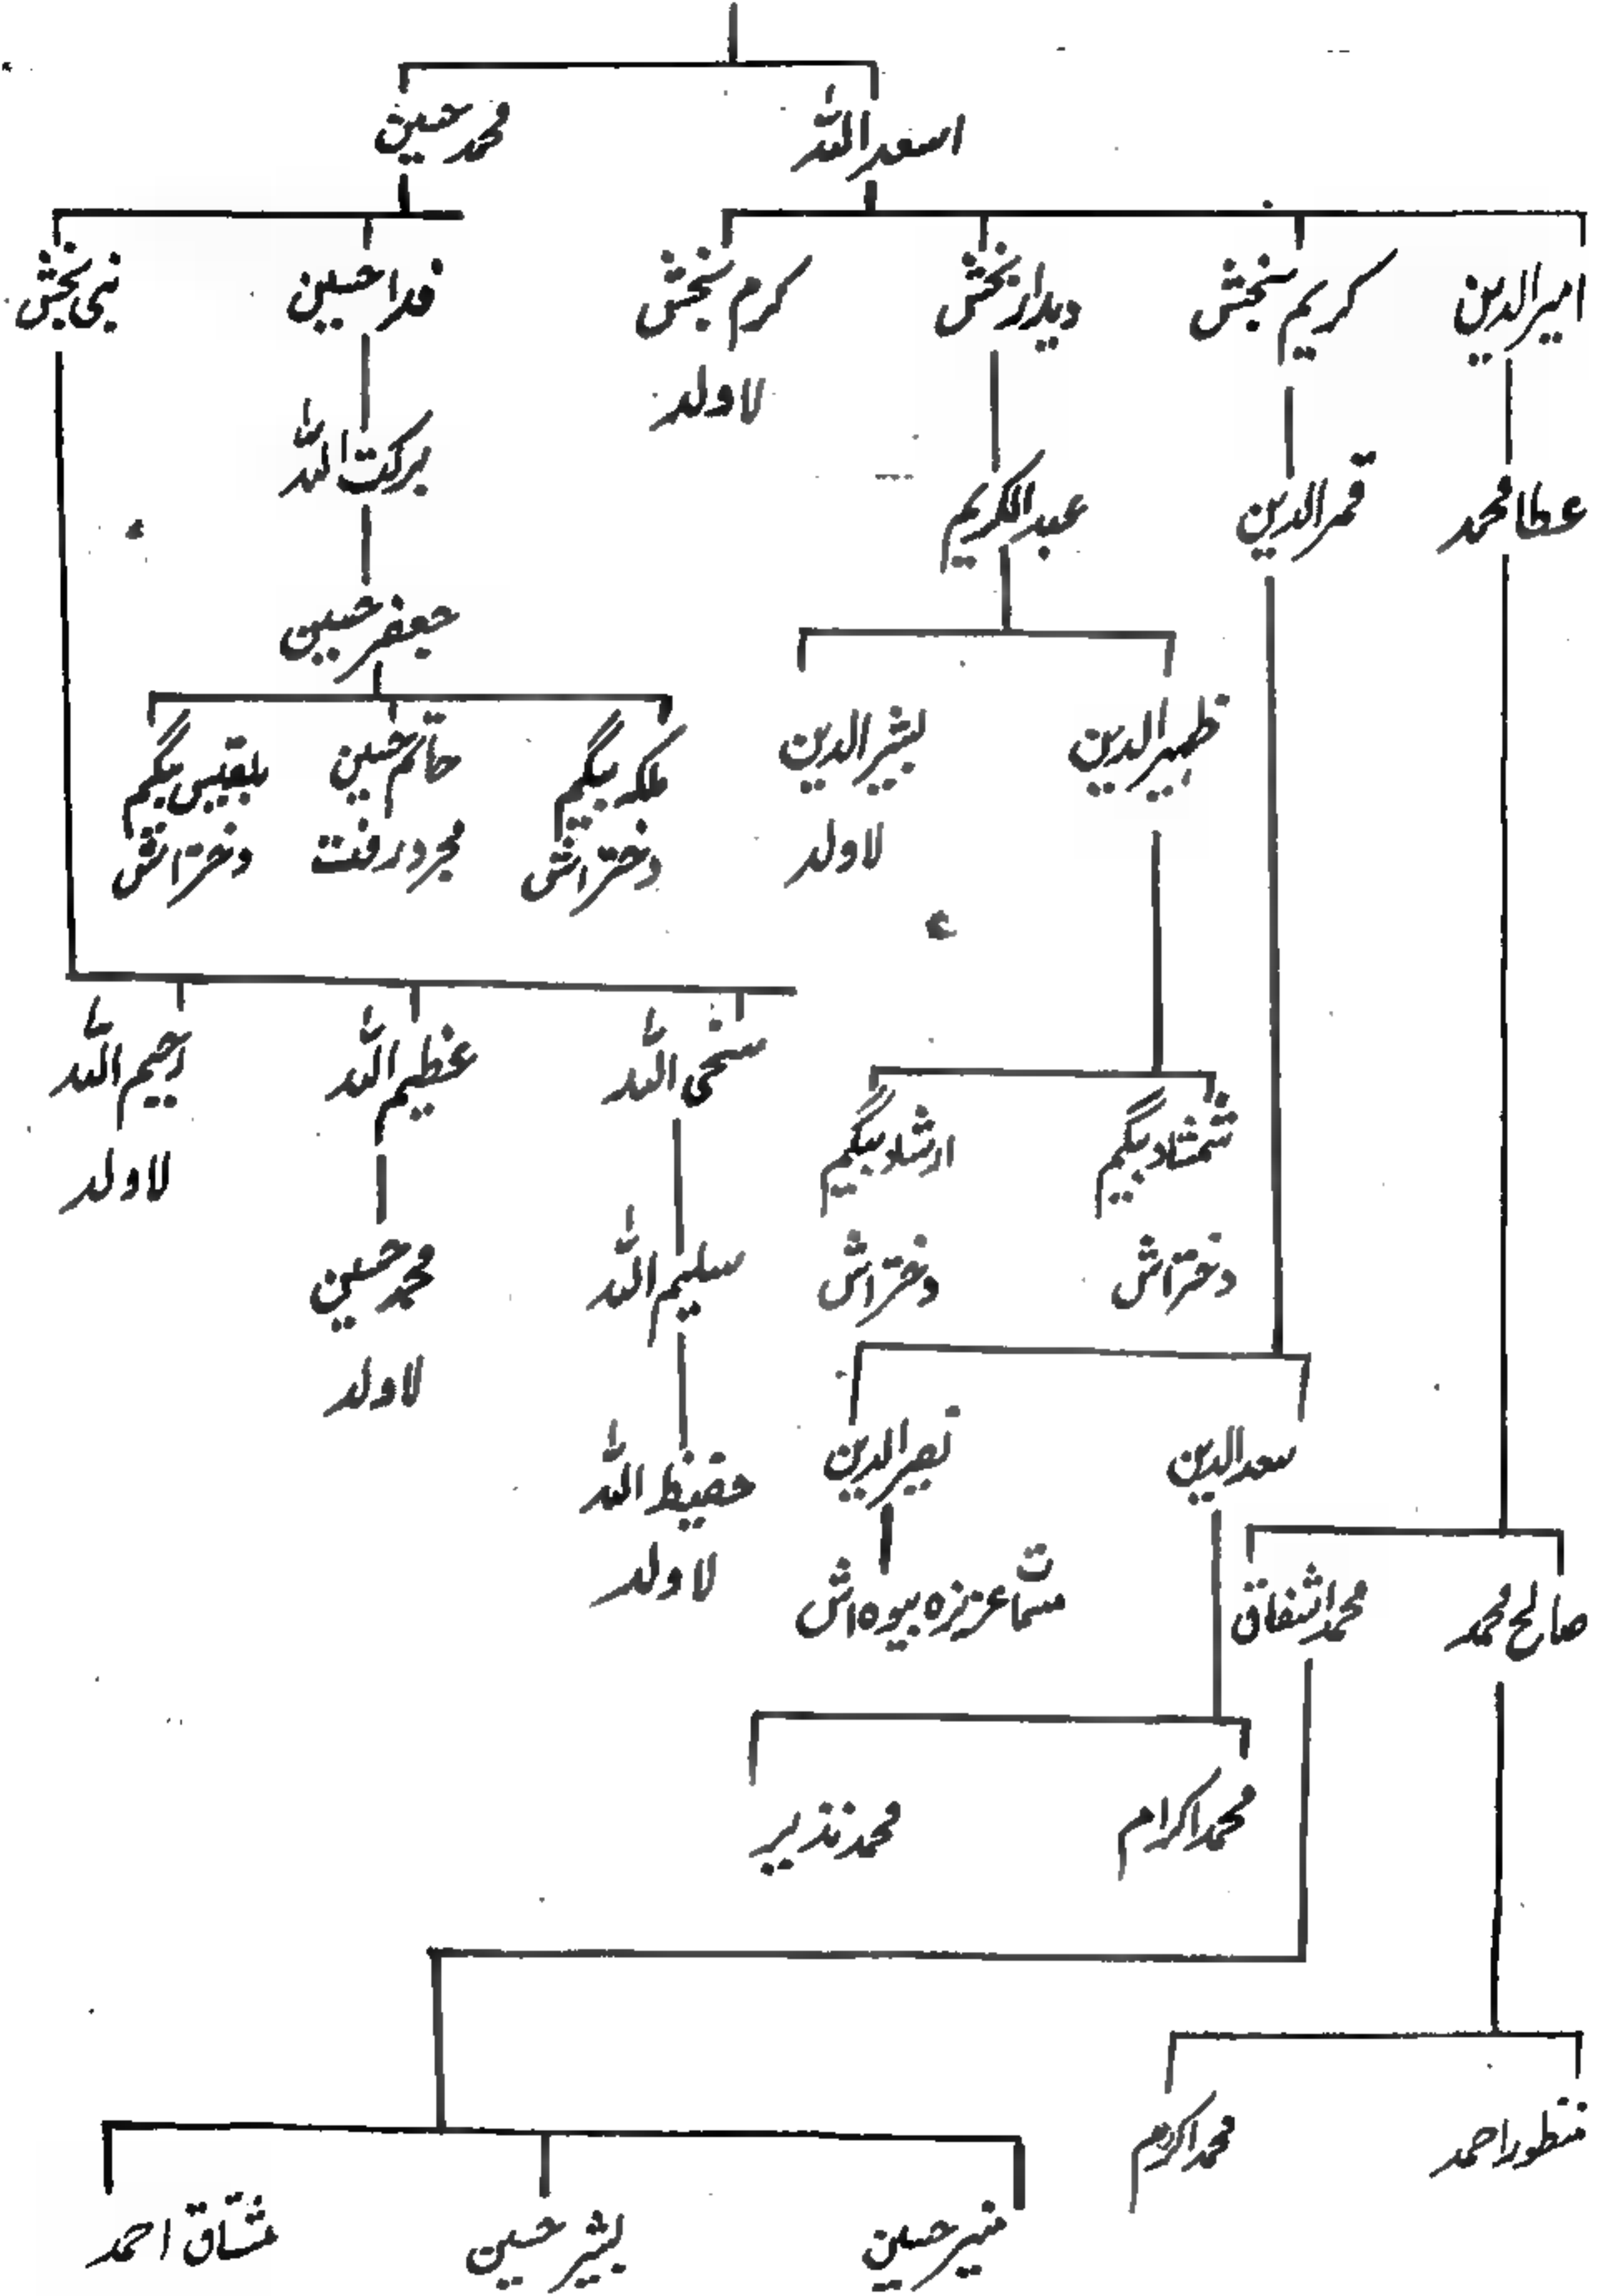 اسعد اللہ
محمد حسین
امیر الدین
کریم بخش
دیدار بخش
کرم بخش
لاولد
فدا حسین
نبی بخش
عطا محمد
قمر الدین
عبد الکریم
برکت اللہ
جعفر حسین
ظہیر الدین
بشیر الدین
لاولد
ملکہ بیگم
دختر اش
حاتم حسین
مجرد رفت
بلقیس بیگم
دختر اش
سخی اللہ
عظیم اللہ
رحیم اللہ
لاولد
شمشاد بیگم
دختر اش
ارشاد بیگم
دختر اش
سلیم اللہ
محمد حسین
لاولد
سعد الدین
نصیر الدین
حفیظ اللہ
لاولد
صالح محمد
محمد اشفاق
مسماۃ عزیزہ بیوہ اش
محمد اکرام
محمد نذیر
منظور احمد
محمد اکرم
منیر حسین
بشیر حسین
مشتاق احمد